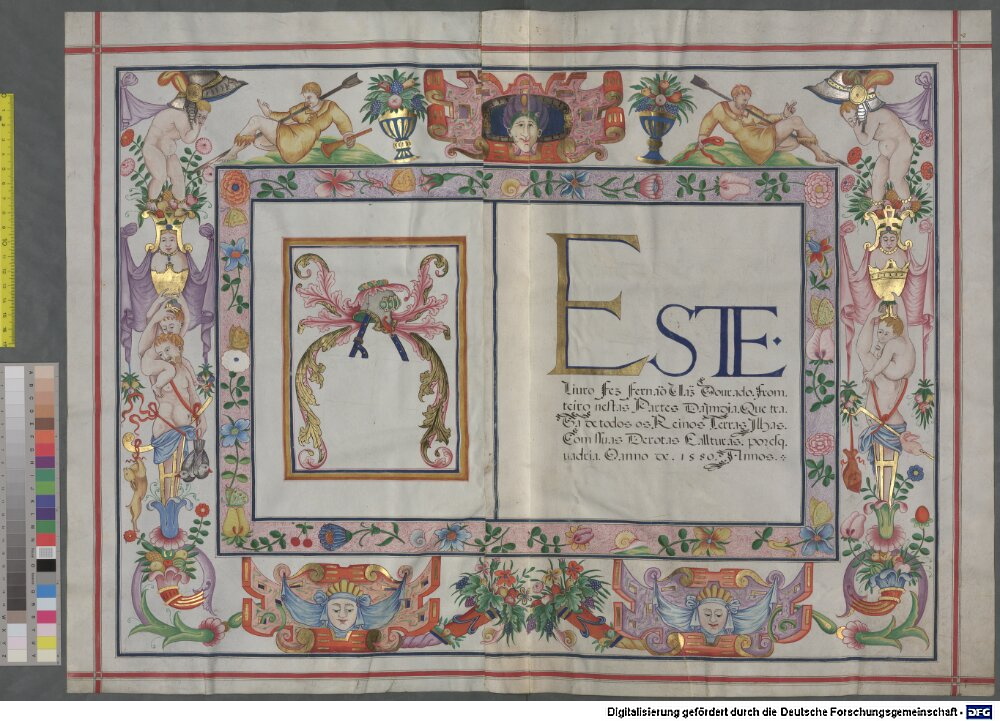 ESTE.
Liuro Fez Fernaõ Vaz Dourado. from
teiro nestas Partes Da Que tra
ta de todos os Reinos Terras Ilhas.
Com suas Derotas E allturas, por esq
uadria. O anno de. 1580. Annos.
Digitalisierung gefördert durch die Deutsche Forschungsgemeinschaft - DFG